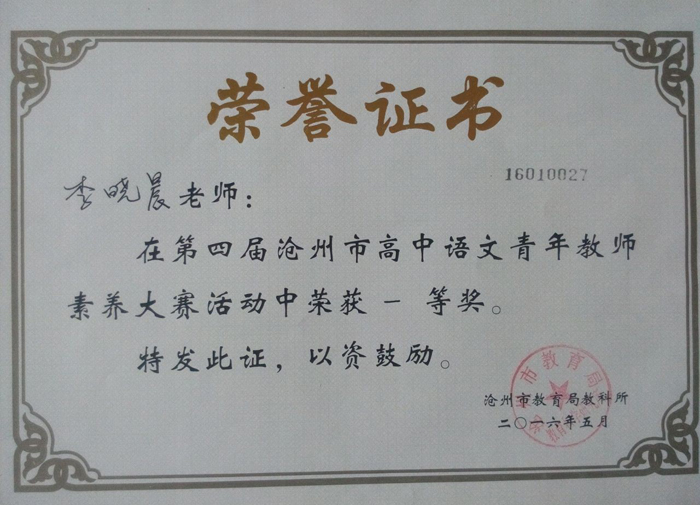 荣誉证书
16010027
李晓晨老师：
在第四届沧州市高中语文青年教师
素养大赛活动中荣获一等奖。
特发此证，以资鼓励。
沧州市教育局教科所
二〇一六年五月